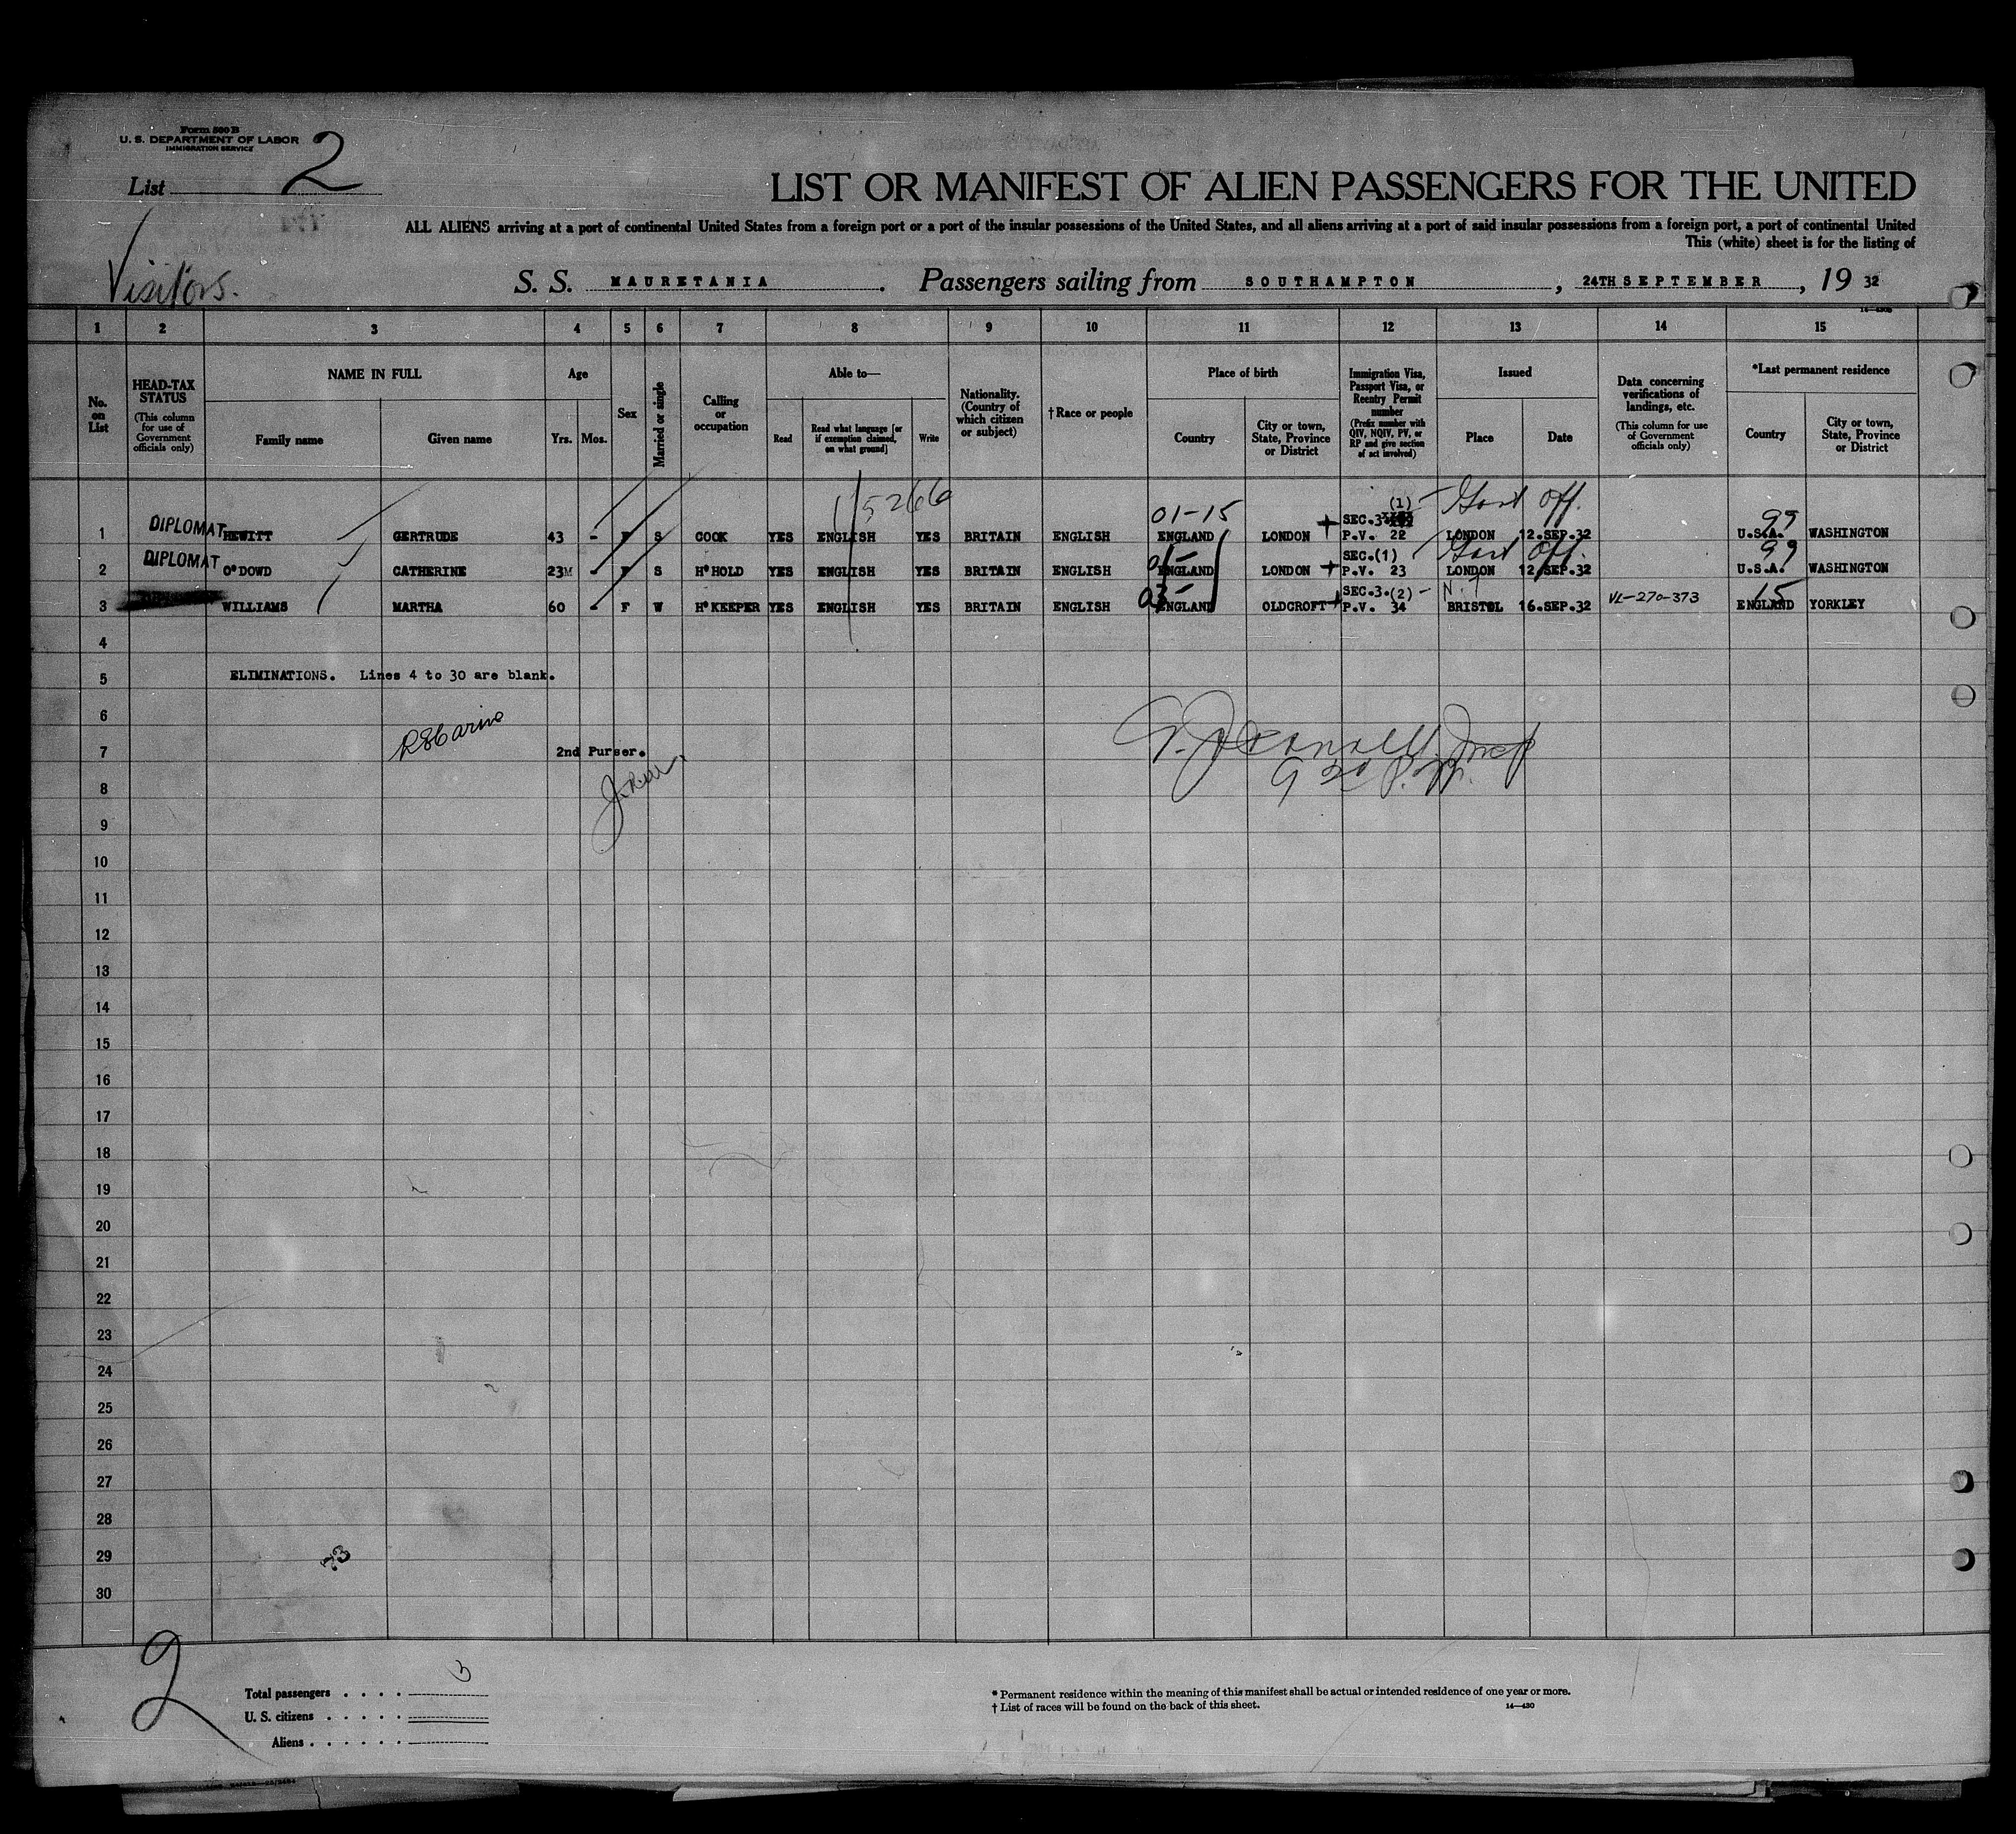 Form 500 B
U. S. DEPARTMENT OF LABOR
IMMIGRATION SERVICE
List 2
LIST OR MANIFEST OF ALIEN PASSENGERS FOR THE UNITED
ALL ALIENS arriving at a port of continental United States from a foreign port or a port of the insular possessions of the United States, and all aliens arriving at a port of said insular possessions from a foreign port, a port of continental United
This (white) sheet is for the listing of
Visitors.
S. S. MAURETANIA. Passengers sailing from SOUTHAMPTON, 24TH SEPTEMBER, 19 32
1 2 3 4 5 6 7 8 9 10 11 12 13 14 15
No. on List
HEAD-TAX STATUS (This column for use of Government officials only)
NAME IN FULL
Family name Given name
Age
Yrs. Mos.
Sex
Married or single
Calling or occupation
Able to—
Read
Read what language [or if exemption claimed, on what ground]
Write
Nationality. (Country of which citizen or subject)
†Race or people
Place of birth
Country
City or town, State, Province or District
Immigration Visa, Passport Visa, or Reentry Permit number (Prefix number with QIV, NQIV, PV, or RP and give section of act involved)
Issued
Place Date
Data concerning verifications of landings, etc. (This column for use of Government officials only)
*Last permanent residence
Country
City or town, State, Province or District
15266
01-15 (1) Govt Off. 99
1 DIPLOMAT HEWITT GERTRUDE 43 - F S COOK YES ENGLISH YES BRITAIN ENGLISH ENGLAND LONDON SEC.3 P.V. 22 LONDON 12.SEP.32 U.S.A. WASHINGTON
Govt Off. 99
2 DIPLOMAT O'DOWD CATHERINE 23M - F S H'HOLD YES ENGLISH YES BRITAIN ENGLISH ENGLAND LONDON SEC.(1) P.V. 23 LONDON 12/SEP.32 U.S.A. WASHINGTON
03- N.T 15
3 WILLIAMS MARTHA 60 - F W H'KEEPER YES ENGLISH YES BRITAIN ENGLISH ENGLAND OLDCROFT SEC.3.(2) - P.V. 34 BRISTOL 16.SEP.32 VL-270-373 ENGLAND YORKLEY
4
5 ELIMINATIONS. Lines 4 to 30 are blank.
6
7 2nd Purser.
8
9
10
11
12
13
14
15
16
17
18
19
20
21
22
23
24
25
26
27
28
29
73
30
2
Total passengers . . . . 3
U. S. citizens . . . . .
Aliens . . . . . .
* Permanent residence within the meaning of this manifest shall be actual or intended residence of one year or more.
† List of races will be found on the back of this sheet.
14—430